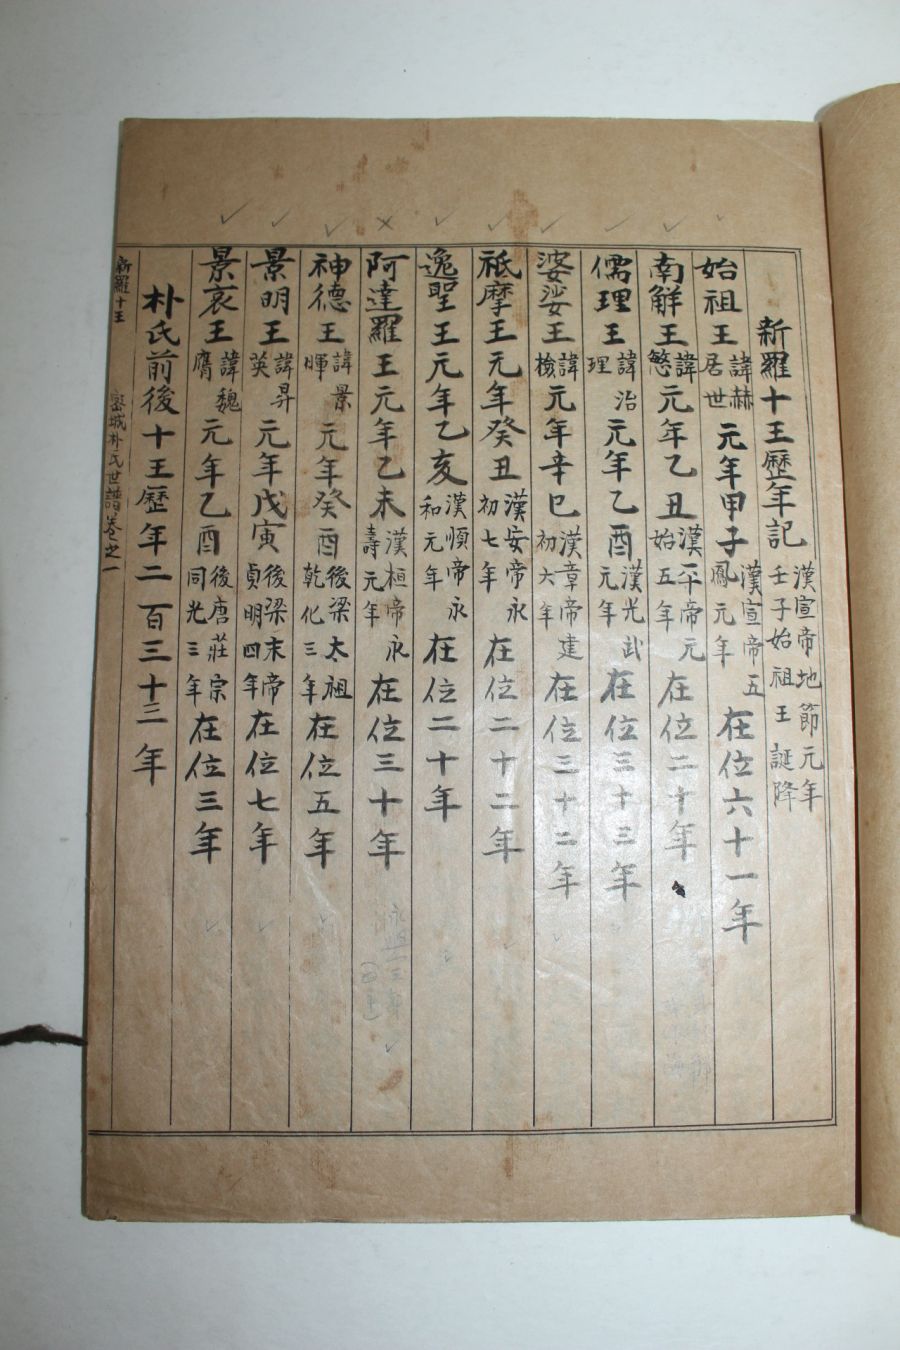 新羅十王歷年記 漢宣帝地節元年壬子始祖王誕降
始祖王 諱赫居世 元年甲子 漢宣帝五鳳元年 在位六十一年
南解王 諱慜 元年乙丑 漢平帝元始五年 在位二十年
儒理王 諱治理 元年乙酉 漢光武元年 在位三十三年
婆娑王 諱檢 元年辛巳 漢章帝建初六年 在位三十二年
祇摩王元年癸丑 漢安帝永初七年 在位二十二年
逸聖王元年乙亥 漢順帝永和元年 在位二十年
阿達羅王元年乙未 漢桓帝永壽元年 在位三十年
神德王 諱景暉 元年癸酉 後梁太祖乾化三年 在位五年
景明王 諱昇英 元年戊寅 後梁末帝貞明四年 在位七年
景哀王 諱魏膺 元年乙酉 後唐莊宗同光三年 在位三年
朴氏前後十王歷年二百三十三年
新羅十王 密城朴氏世譜卷之一